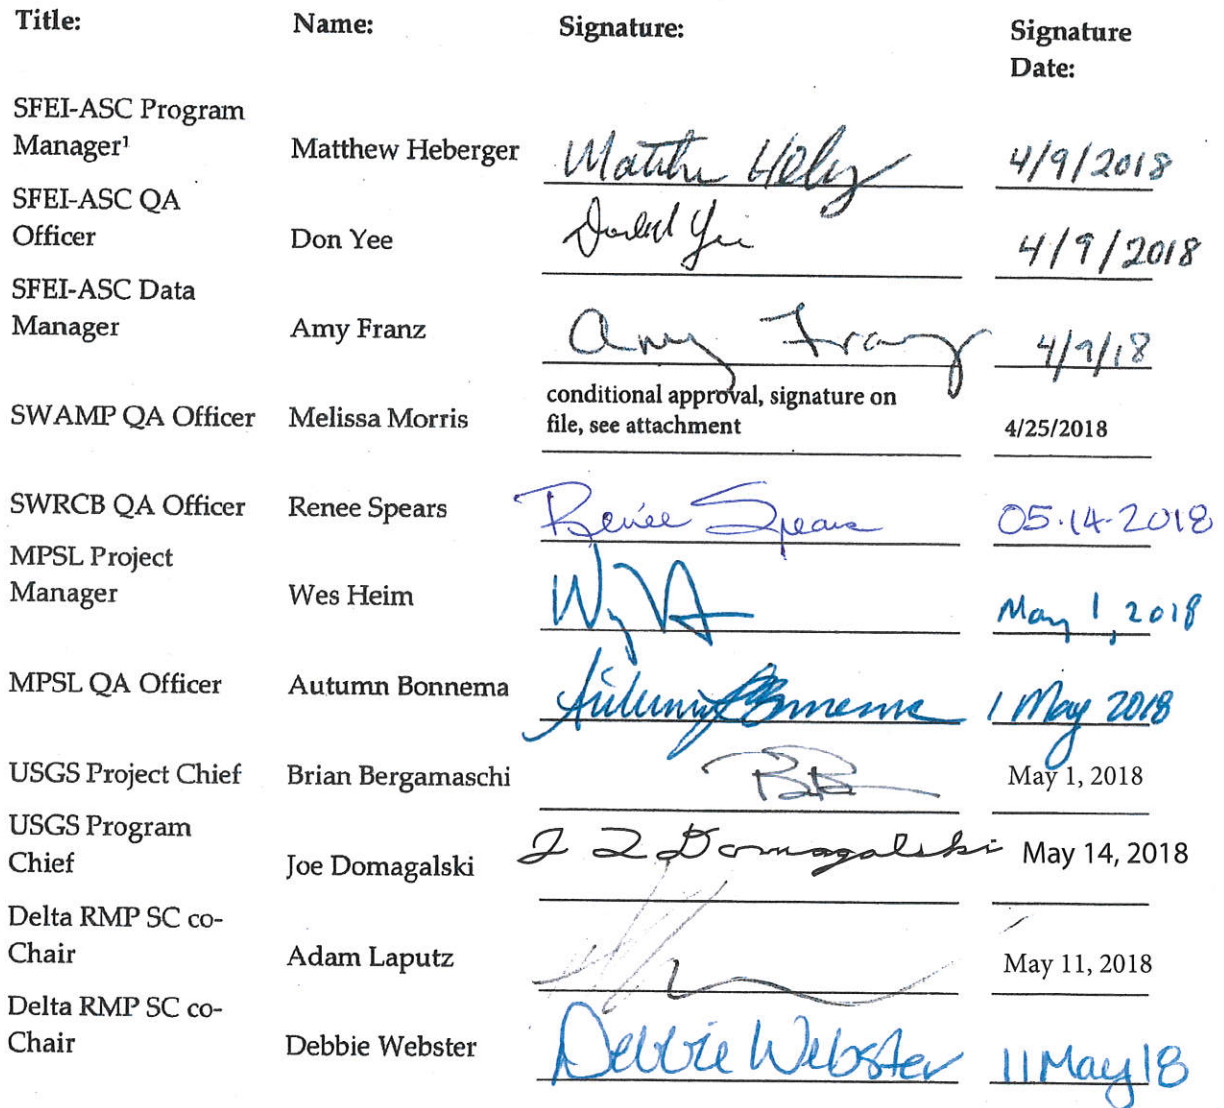 Title: Name: Signature: Signature
Date:
SFEI-ASC Program
Manager¹ Matthew Heberger Matthew 4/9/2018
SFEI-ASC QA
Officer Don Yee Donald Yee 4/9/2018
SFEI-ASC Data
Manager Amy Franz Amy Franz 4/9/18
conditional approval, signature on
SWAMP QA Officer Melissa Morris file, see attachment 4/25/2018
SWRCB QA Officer Renee Spears Renée Spears 05.14.2018
MPSL Project
Manager Wes Heim May 1, 2018
MPSL QA Officer Autumn Bonnema Autumn Bonnema 1 May 2018
USGS Project Chief Brian Bergamaschi May 1, 2018
USGS Program
Chief Joe Domagalski J L Domagalski May 14, 2018
Delta RMP SC co-
Chair Adam Laputz May 11, 2018
Delta RMP SC co-
Chair Debbie Webster Debbie Webster 11 May 18